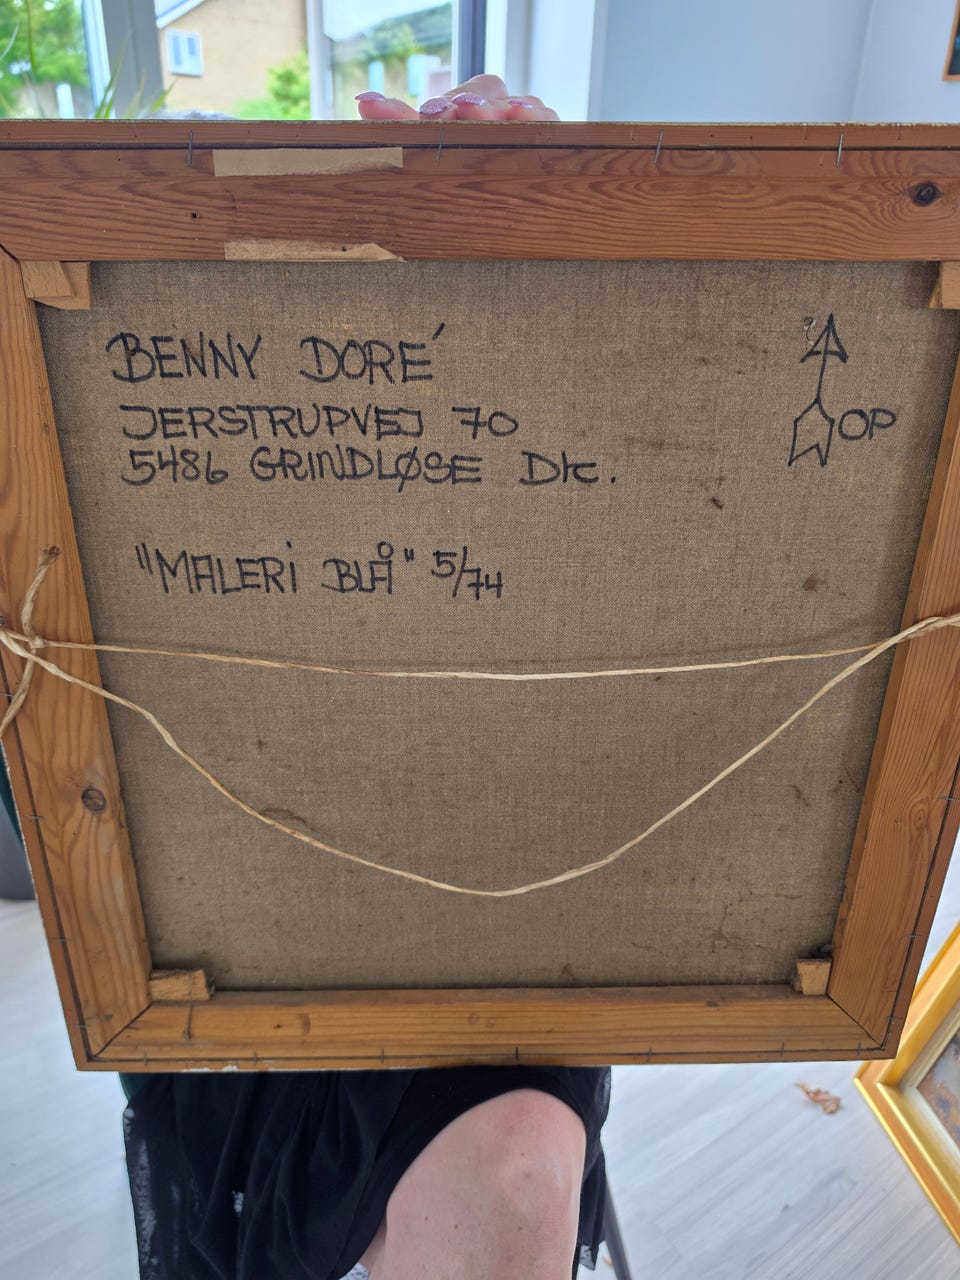 BENNY DORÉ
JERSTRUPVEJ 70
5486 GRINDLØSE DK.
OP
"MALERI BLÅ" 5/74